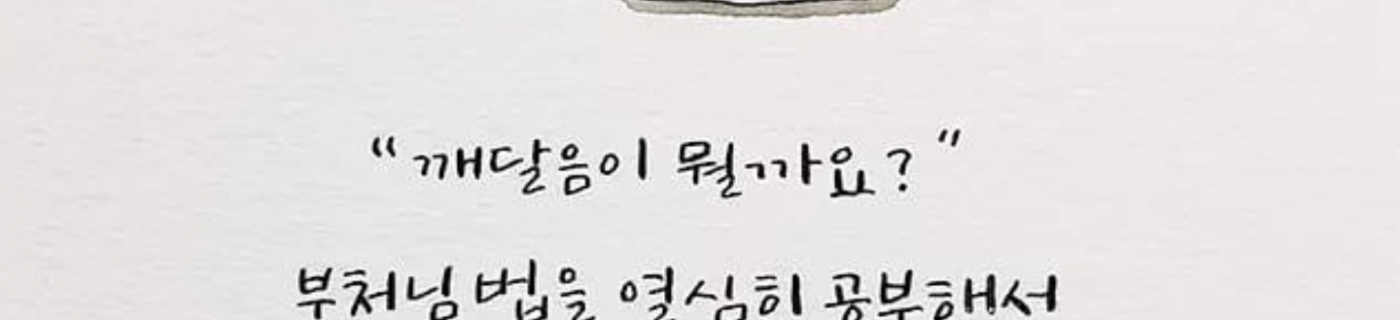 “깨달음이 뭘까요?”
부처님 법을 열심히 공부해서